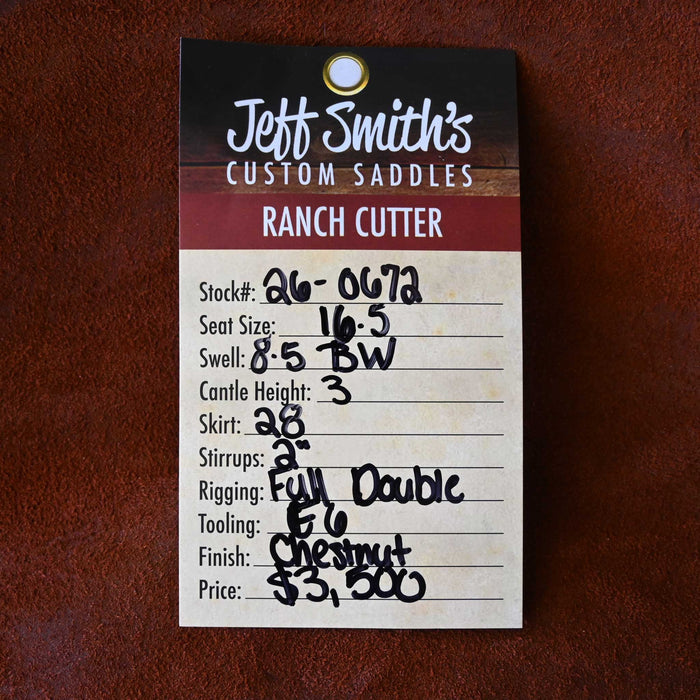 Jeff Smith's
CUSTOM SADDLES
RANCH CUTTER
Stock#: 26-0672
Seat Size: 16.5
Swell: 8.5 BW
Cantle Height: 3
Skirt: 28
Stirrups: 2"
Rigging: Full Double
Tooling: E6
Finish: Chestnut
Price: $3,500